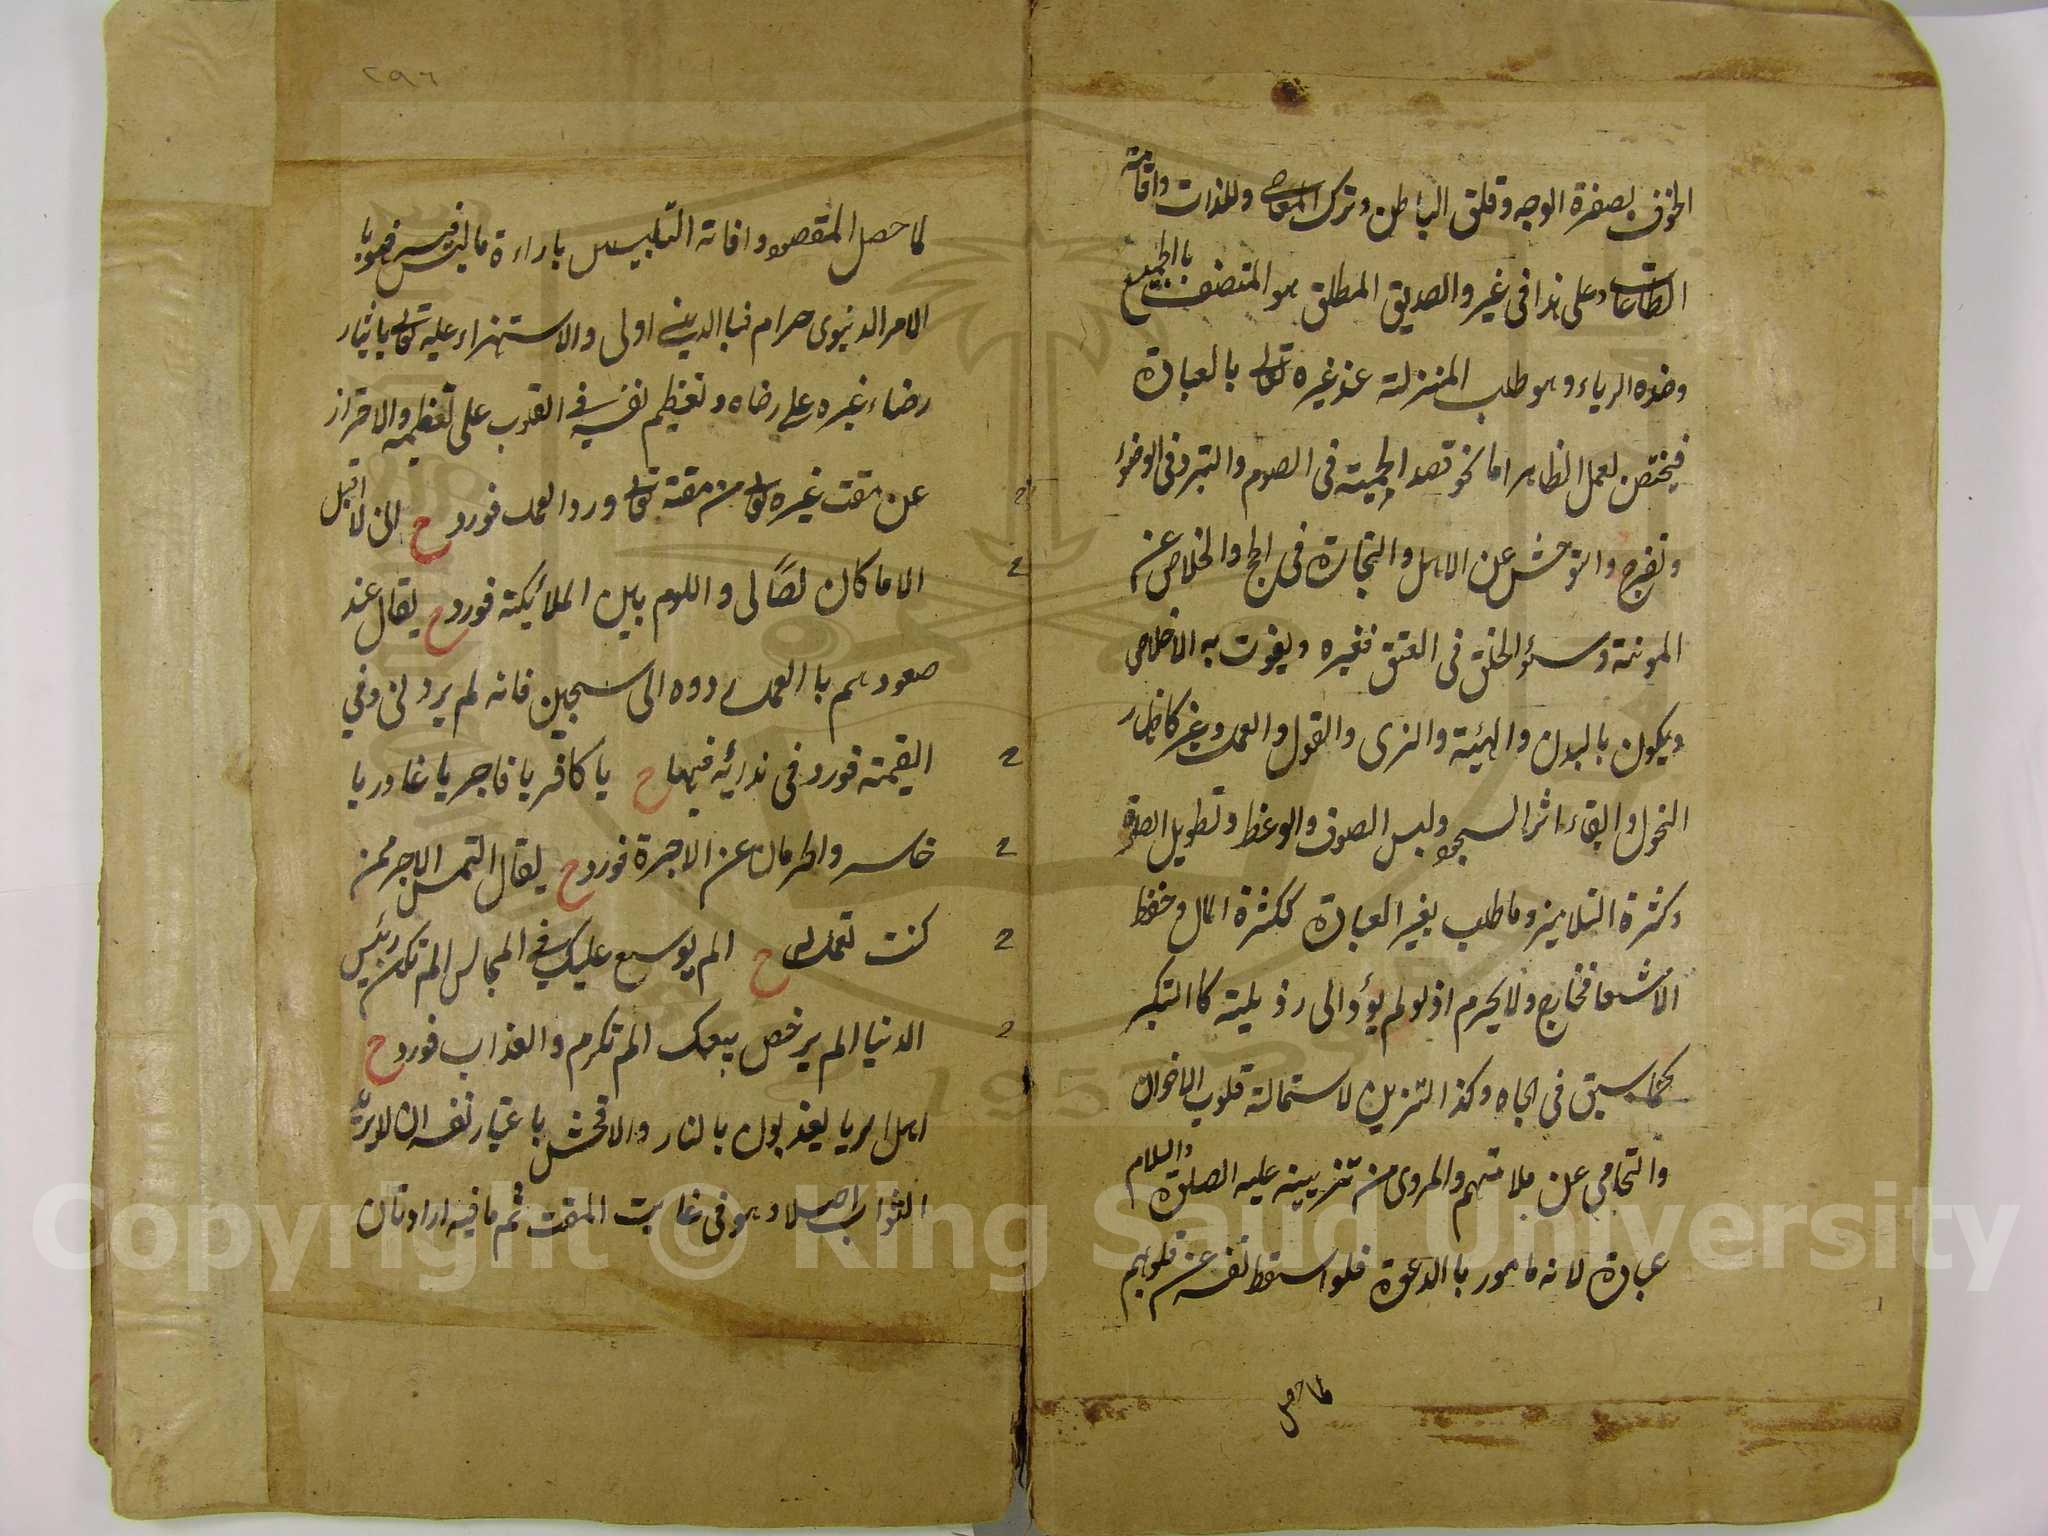 الخوف بصفرة الوجه وقلق الباطن وترك المعاصى واللذات واقامة
الطاعات وعلى هذا فى غيره والصديق المطلق هو المتصف بالجميع
وضده الرياء وهو طلب المنزلة عند غيره تعالى بالعبادة
فيختص لعمل الظاهر اما نحو قصد الحمية فى الصوم والتبرد فى الوضوء
وتفرج والتوحش عن الاهل والتجارة فى الحج والخلاص عن
المونة وسؤ الخلق فى العتق فغيره ويفوت به الاخلاص
ويكون بالبدن والهيئة والزى والقول والعمل وغيره كاظهار
النحول وابقاء اثر السجود ولبس الصوف والوعظ وتطويل الصلوة
وكثرة التلاميذ وما طلب بغير العبادة ككثرة المال وحفظ
الاشعار فخارج ولا يحرم اذ لو لم يؤد الى رذيلة كا التكبر
كما سبق فى الجاه وكذا التزين لاستمالة قلوب الاخوان
والتحامى عن ملامتهم والمروى من تزيينه عليه الصلوة والسلام
عبادة لانه مامور با الدعوة فلو اسقط نفسه عن قلوبهم
لما حصل
٢٩٦
لما حصل المقصود وافاته التلبيس باراءة ما ليس فيه فهو با
الامر الدنيوى حرام فبا الدينى اولى والاستهزاء عليه تعالى بايثار
رضاء غيره على رضاه وتعظيم نفسه فى القلوب على تعظيمه والاحتراز
عن مقت غيره تعالى من مقته تعالى ورد العمل فورد ح انى لا اقبل
الا ما كان خالصا لى واللوم بين الملائكة فورد ح يقال عند
صعودهم با العمل ردوه الى سجين فانه لم يردنى وفى
القيمة فورد فى ندائه فيها ح يا كافر يا فاجر يا غادر يا
خاسر والحرمان عن الاجرة فورد ح يقال التمس الاجر ممن
كنت تعمل له ح الم يوسع عليك فى المجالس الم تكن رئيس
الدنيا الم يرخص بيعك الم تكرم والعذاب فورد ح
اهل الريا يعذبون بالنار والافحش باعتبار نفسه ان لا يريد
الثواب اصلا وهو فى غاية المقت ثم ما فيه ارادتان